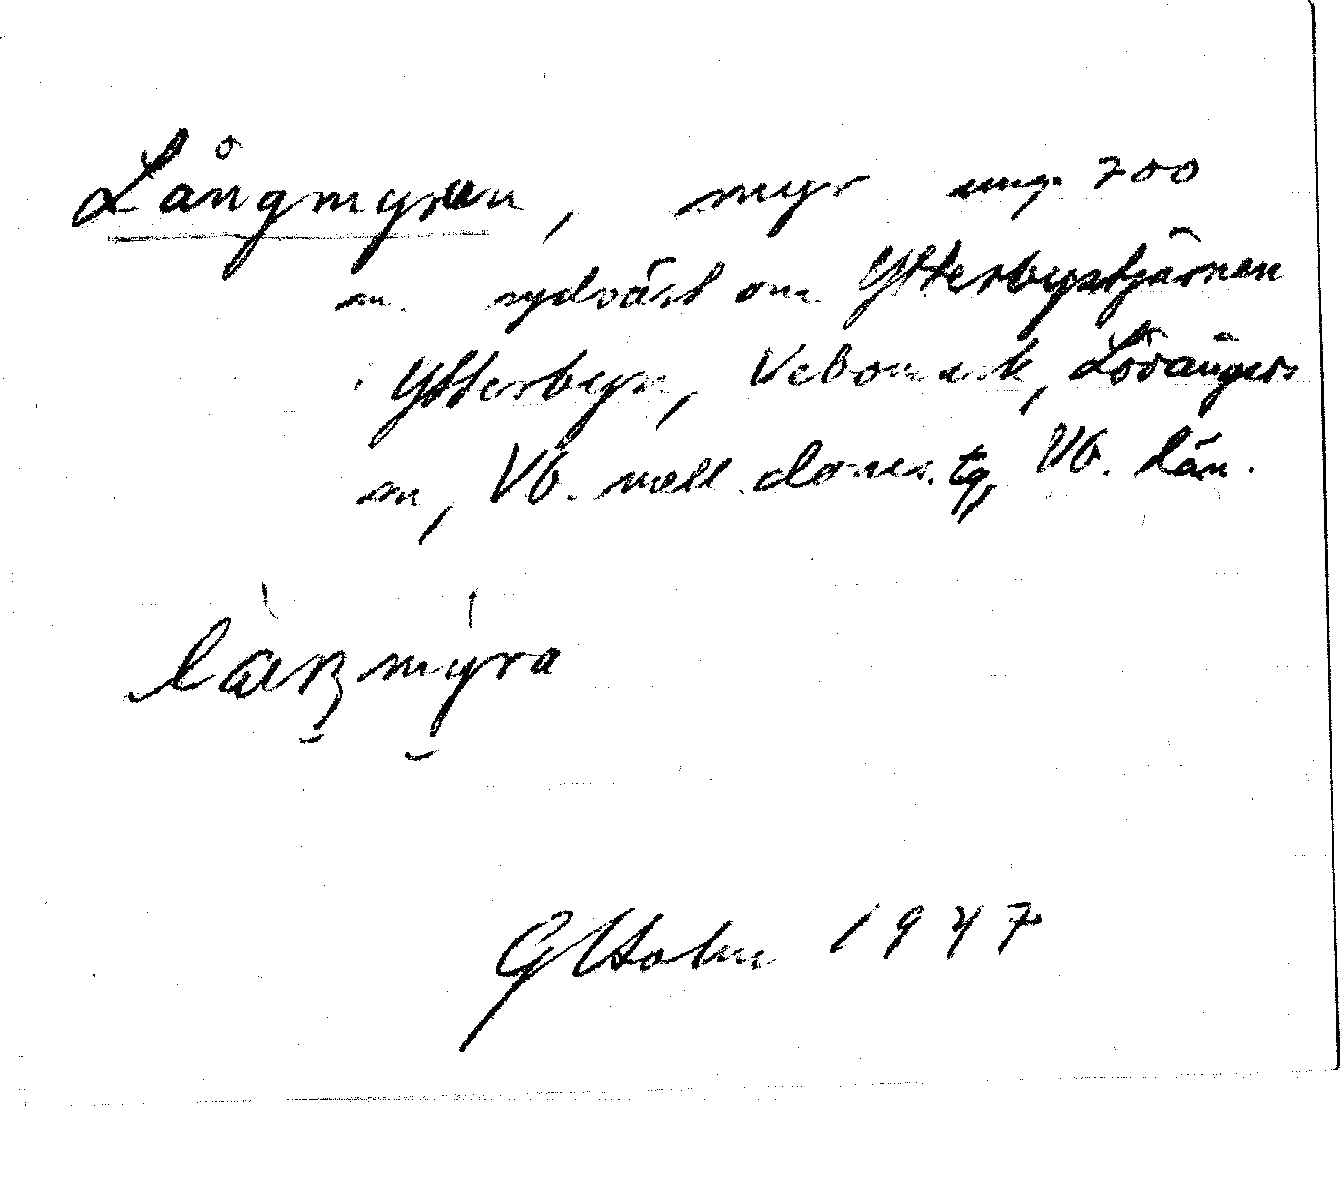 Långmyren, myr ung. 700
m. sydväst om Ytterbystjärnen
Ytterbyn, Vebomark, Lövångers
sn, Vb. mell. doms. tg, Vb. län.
myra
G Holm 1947